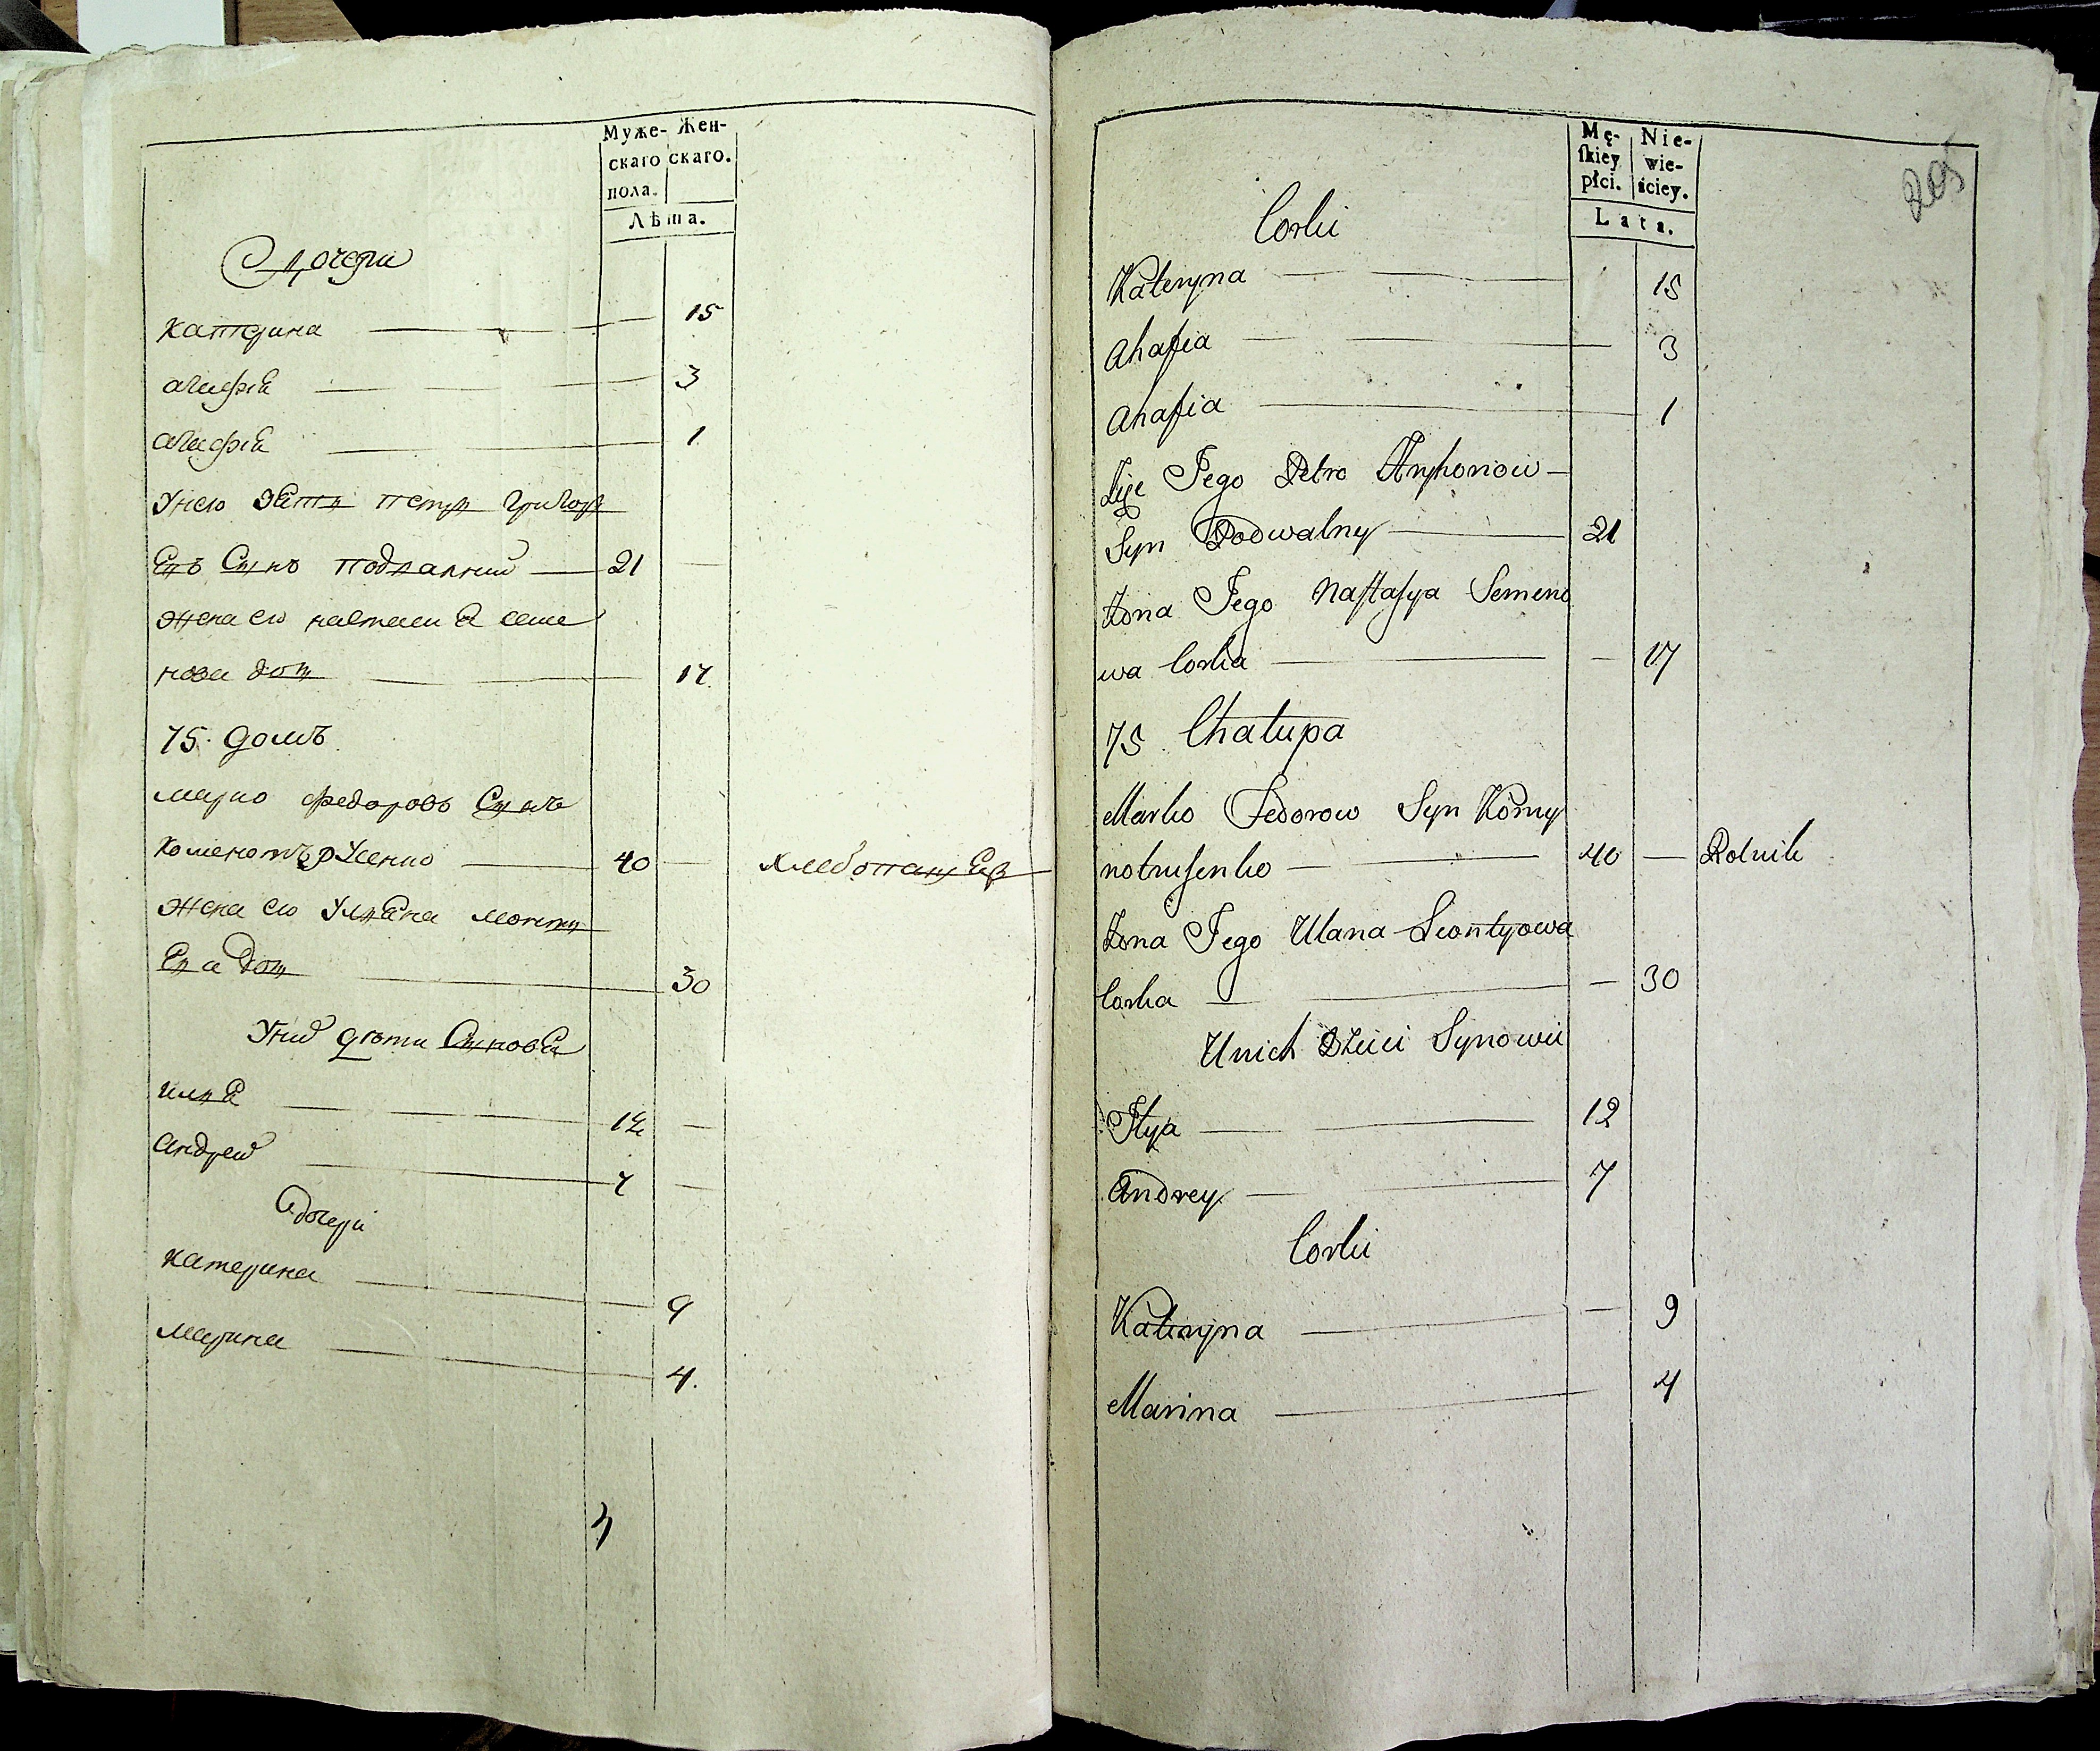 Муже- Жен-
скаго скаго.
пола.
Лѣта.
Дочери
Катерина 15
агафія 3
агафія 1
Унего зять петръ григор
евъ Сынъ подвалний 21
жена его настасия семе
нова дочь 17
75. домъ
марко федоровъ Сынъ
40 хлебопашецъ
жена его уляна леонти
ева дочь 30
Уних дѣти Синовя
илия 12
андрей 7
дочери
катерина 9
марина 4.
Mę- Nie-
ſkiey wie-
płci. ściey.
Lata.
205
Corki
Kateryna 15
Ahafia 3
Ahafia 1
Jego Petro
Syn Podwalny 21
Zona Jego Naſtaſya Semeno
wa Corka 17
75 Chałupa
Marko Fedorow Syn Komy
notruſenko 40 Rolnik
Zona Jego Ulana Leontyowa
Corka 30
Unich Dzieci Synowie
Ilya 12
Andrey 7
Corki
Kateryna 9
Marina 4